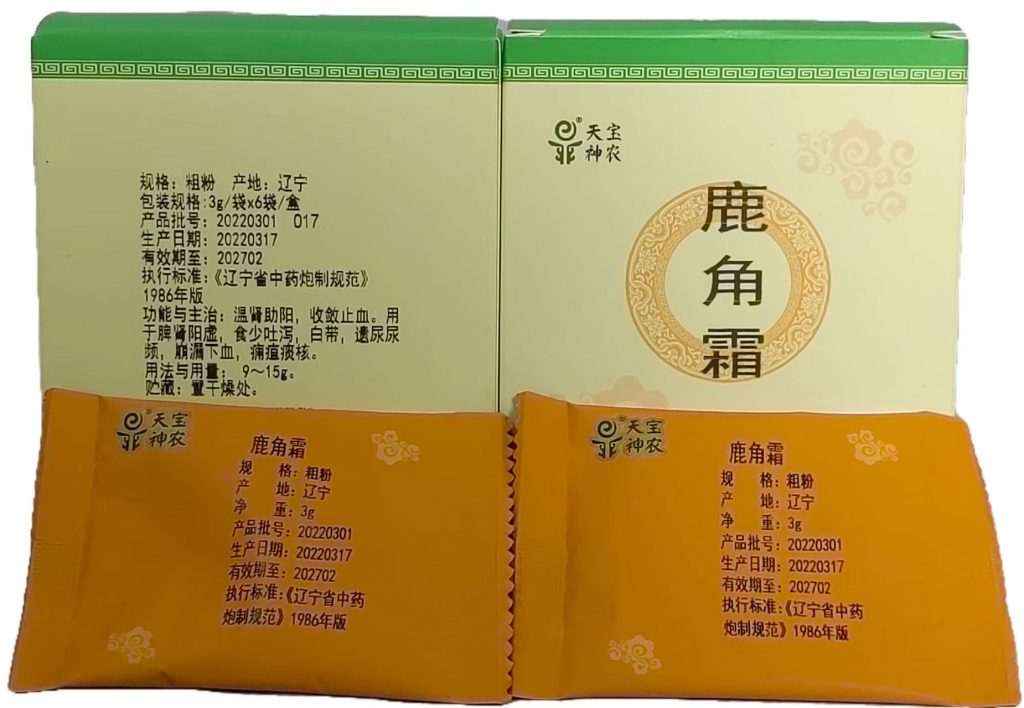 规格：粗粉 产地：辽宁
包装规格:3g/袋x6袋/盒
产品批号：20220301 017
生产日期：20220317
有效期至：202702
执行标准：《辽宁省中药炮制规范》
1986年版
功能与主治：温肾助阳，收敛止血。用
于脾肾阳虚，食少吐泻，白带，遗尿尿
频，崩漏下血，痈疽痰核。
用法与用量：9～15g。
贮藏：置干燥处。
天宝
神农
鹿
角
霜
天宝
神农
鹿角霜
规 格：粗粉
产 地：辽宁
净 重：3g
产品批号：20220301
生产日期：20220317
有效期至：202702
执行标准：《辽宁省中药
炮制规范》1986年版
天宝
神农
鹿角霜
规 格：粗粉
产 地：辽宁
净 重：3g
产品批号：20220301
生产日期：20220317
有效期至：202702
执行标准：《辽宁省中药
炮制规范》1986年版